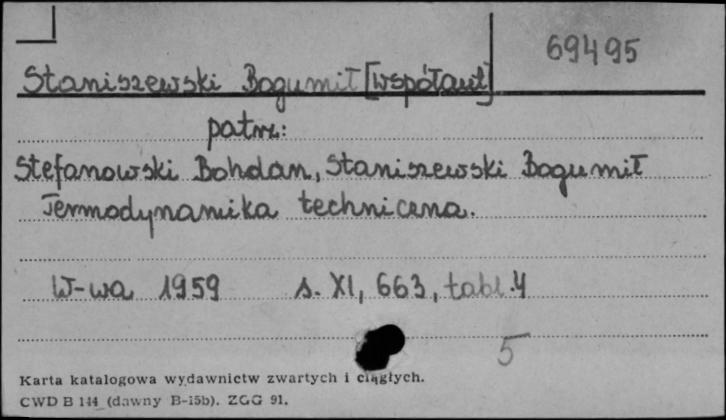 69495
Staniszewski Bogumił [współaut]
patrz:
Stefanowski Bohdan, Staniszewski Bogumił
Termodynamika techniczna.
W-wa 1959 s. XI, 663, tabl. 4
5
Karta katalogowa wydawnictw zwartych i ciągłych.
CWD B 144 (dawny B-15b). ZGG 91.